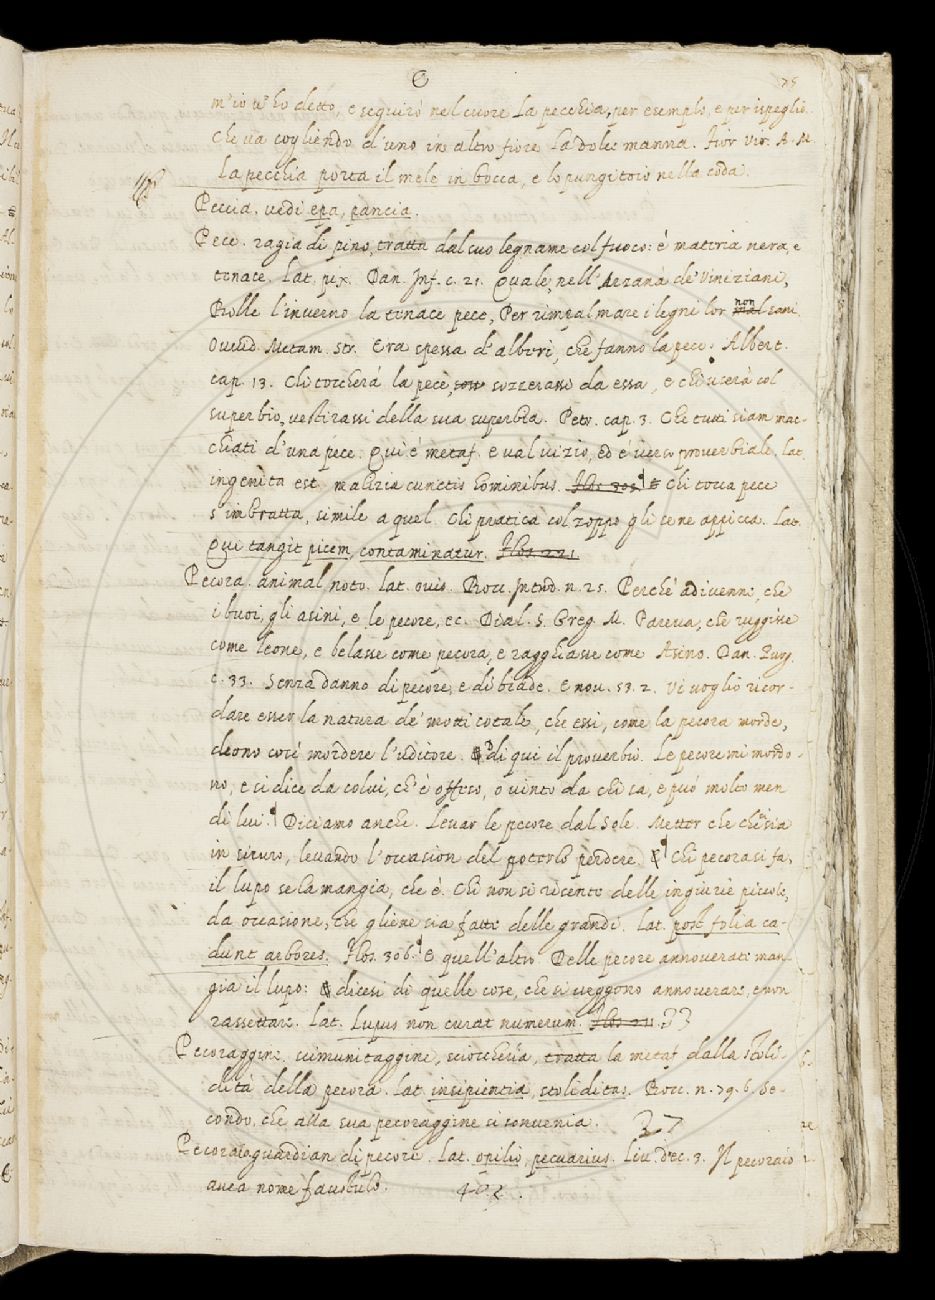 C
m'io v'ho detto, e seguirò nel cuore la pecchia, per esemplo, e per ispeglio
che va cogliendo d'uno in altro fiore la dolce manna. Fior Vir. A. M.
La pecchia porta il mele in bocca, e lo pungitoio nella coda.
Peccia. vedi epa, pancia.
Pece. ragia di pino, tratta dal suo legname col fuoco: è materia nera, e
tenace. Lat. pix. Dan. Inf. c. 21. Quale, nell'Arzanà de' Viniziani,
Bolle l'inverno la tenace pece, Per rimpalmare i legni lor non sani.
Ovvid. Metam. Str. Era spessa d'albori, che fanno la pece. Albert.
cap. 13. Chi toccherà la pece, sozzerassi da essa, e chi userà col
superbio, vestirassi della sua superbia. Petr. cap. 3. Che tutti siam mac-
chiati d'una pece. Qui è metaf. e val vizio, ed è verso proverbiale. lat.
ingenita est malizia cunctis hominibus. Flos 305 Chi tocca pece
s'imbratta, simile a quel. Chi pratica col zoppo gli se ne appicca. Lat.
Qui tangit picem, contaminatur. Flos 221
Pecora. animal noto. lat. ovis. Bocc. Introd. n. 25. Perchè adivenne, che
i buoi, gli asini, e le pecore, ec. Dial. S. Greg. M. Pareva, che ruggisse
come leone, e belasse come pecora, e ragghiasse come Asino. Dan. Purg.
c. 33. Senza danno di pecore, e di biade. E nov. 53. 2. Vi voglio ricor-
dare esser la natura de' motti cotale, che essi, come la pecora morde,
deono così mordere l'uditore. di qui il proverbio. Le pecore mi mordo-
no, e si dice da colui, ch'è offeso, o vinto da chi sa, e può molto men
di lui. Diciamo anche. Levar le pecore dal Sole. Metter che che sia
in sicuro, levando l'occasion del poterlo perdere. Chi pecora si fa,
il lupo se la mangia, che è. Chi non si risente delle ingiurie piccole,
da occasione, che gliene sia fatte delle grandi. Lat. post folia ca-
dunt arbores. Flos. 306. E quell'altro Delle pecore annoverate man-
gia il lupo: dicesi di quelle cose, che si veggono annoverare, e non
rassettare. Lat. Lupus non curat numerum. 33
Pecoraggine. scimunitaggine, sciocchezza, tratta la metaf dalla stoli-
dità della pecora. lat. insipientia, stoliditas. Bocc. n. 79. 6. Se-
condo, che alla sua pecoraggine si convenia. 27
Pecoraio guardian di pecore. Lat. opilio, pecuarius. Liv. dec. 3. Il pecoraio
avea nome Faustulo.